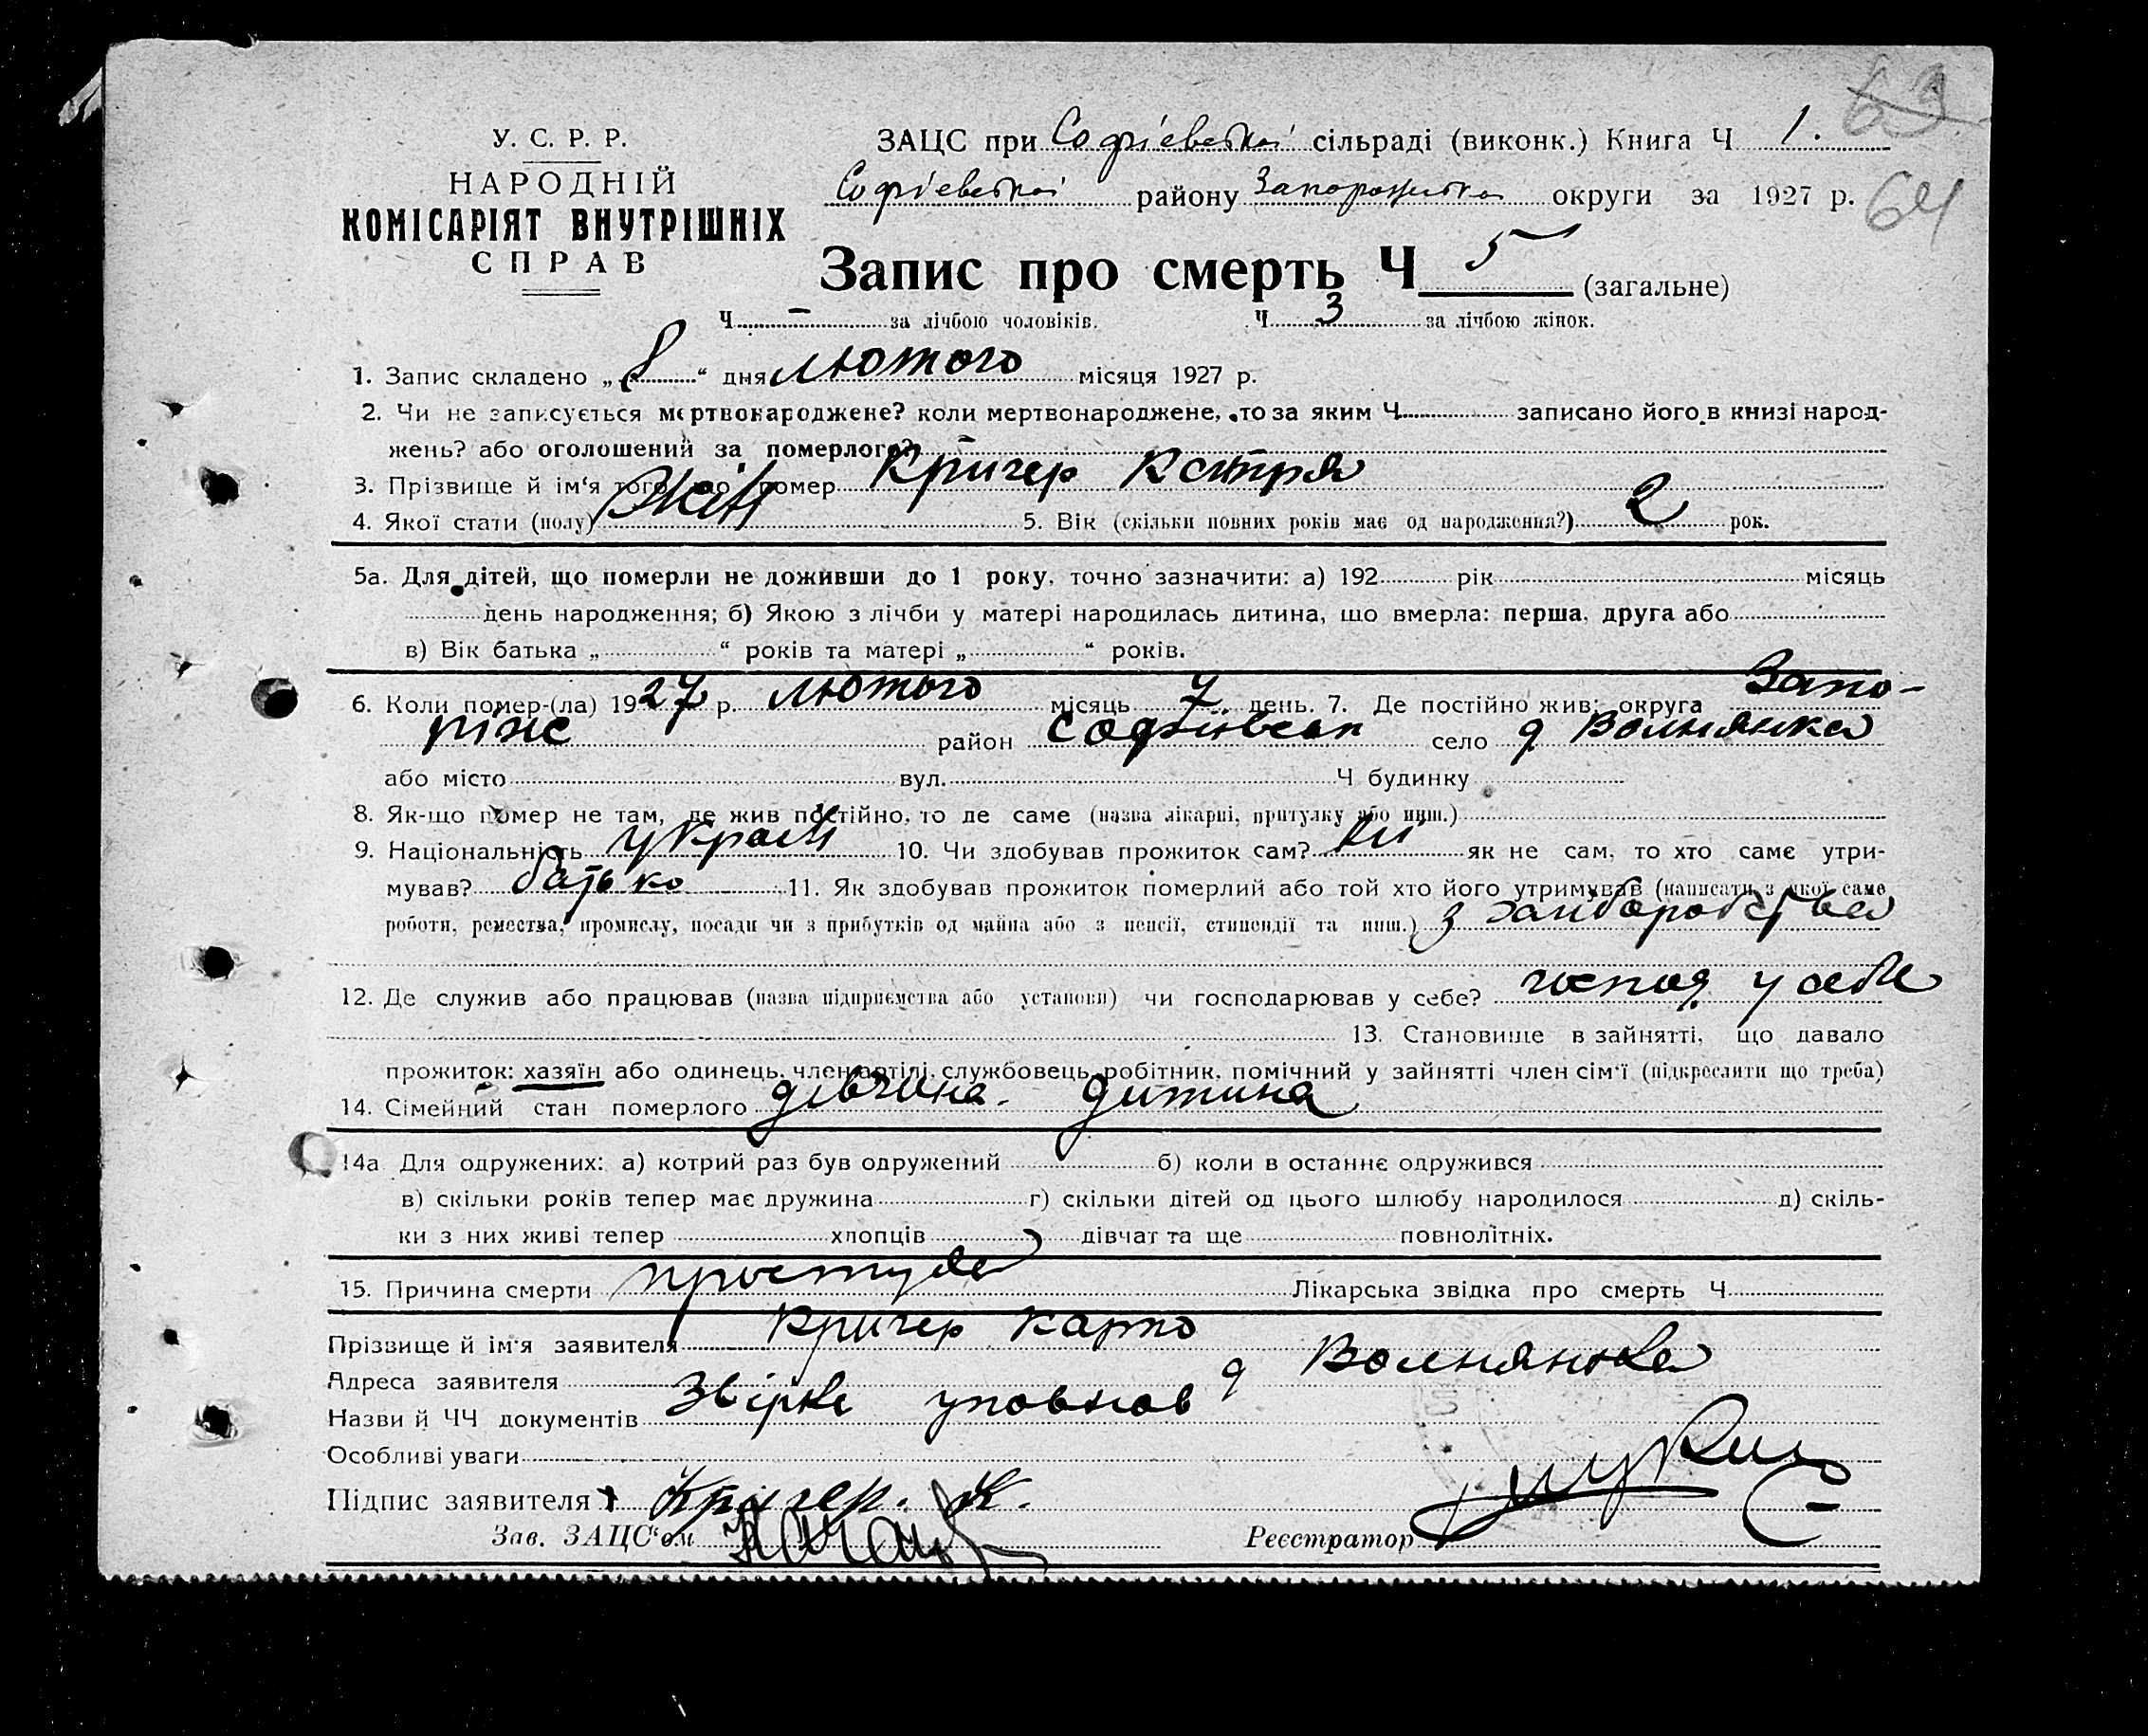 63
У. С. Р. Р.
НАРОДНІЙ
КОМІСАРІЯТ ВНУТРІШНІХ
СПРАВ
ЗАЦС при Софієвській сільраді (виконк.) Книга Ч 1.
Софієвській району Запорожской округи за 1927 р.
64
Запис про смерть Ч 5 (загальне)
Ч — за лічбою чоловіків. Ч 3 за лічбою жінок.
1. Запис складено „ 8 “ дня лютого місяця 1927 р.
2. Чи не записується мертвонароджене? коли мертвонароджене, то за яким Ч записано його в книзі народ-
жень? або оголошений за померлого? —
3. Прізвище й ім'я того, що помер Кричер
4. Якої статі (полу) Жін 5. Вік (скільки повних років має од народження?) 2 рок.
5а. Для дітей, що померли не доживши до 1 року, точно зазначити: а) 192 рік місяць
день народження; б) Якою з лічби у матері народилась дитина, що вмерла: перша, друга або
в) Вік батька „ “ років та матері „ “ років.
6. Коли помер-(ла) 1927 р. лютого місяць 7 день. 7. Де постійно жив: округа Запо-
ріже район Софиівськ село д Вольнянка
або місто вул. Ч будинку
8. Як-що помер не там, де жив постійно, то де саме (назва лікарні, притулку або инш.)
9. Національність україн 10. Чи здобував прожиток сам? ні як не сам, то хто саме утри-
мував? батько 11. Як здобував прожиток померлий або той хто його утримував (написати з якої саме
роботи, ремества, промислу, посади чи з прибутків од майна або з пенсії, стипендії та инш.) з хліборобства
12. Де служив або працював (назва підприємства або установи) чи господарював у себе? господ у себе
13. Становище в зайнятті, що давало
прожиток: хазяїн або одинець, член артілі, службовець, робітник, помічний у зайнятті член сім'ї (підкреслити що треба)
14. Сімейний стан померлого дівчина. дитина
14а Для одружених: а) котрий раз був одружений б) коли в останнє одружився
в) скільки років тепер має дружина г) скільки дітей од цього шлюбу народилося д) скіль-
ки з них живі тепер хлопців дівчат та ще повнолітніх.
15. Причина смерти простуда Лікарська звідка про смерть Ч
Прізвище й ім'я заявителя Кричер Карпо
Адреса заявителя д Вольнянка
Назви й ЧЧ документів Звірка уповнов
Особливі уваги
Підпис заявителя Кричер. К.
Зав. ЗАЦС'ом Реєстратор